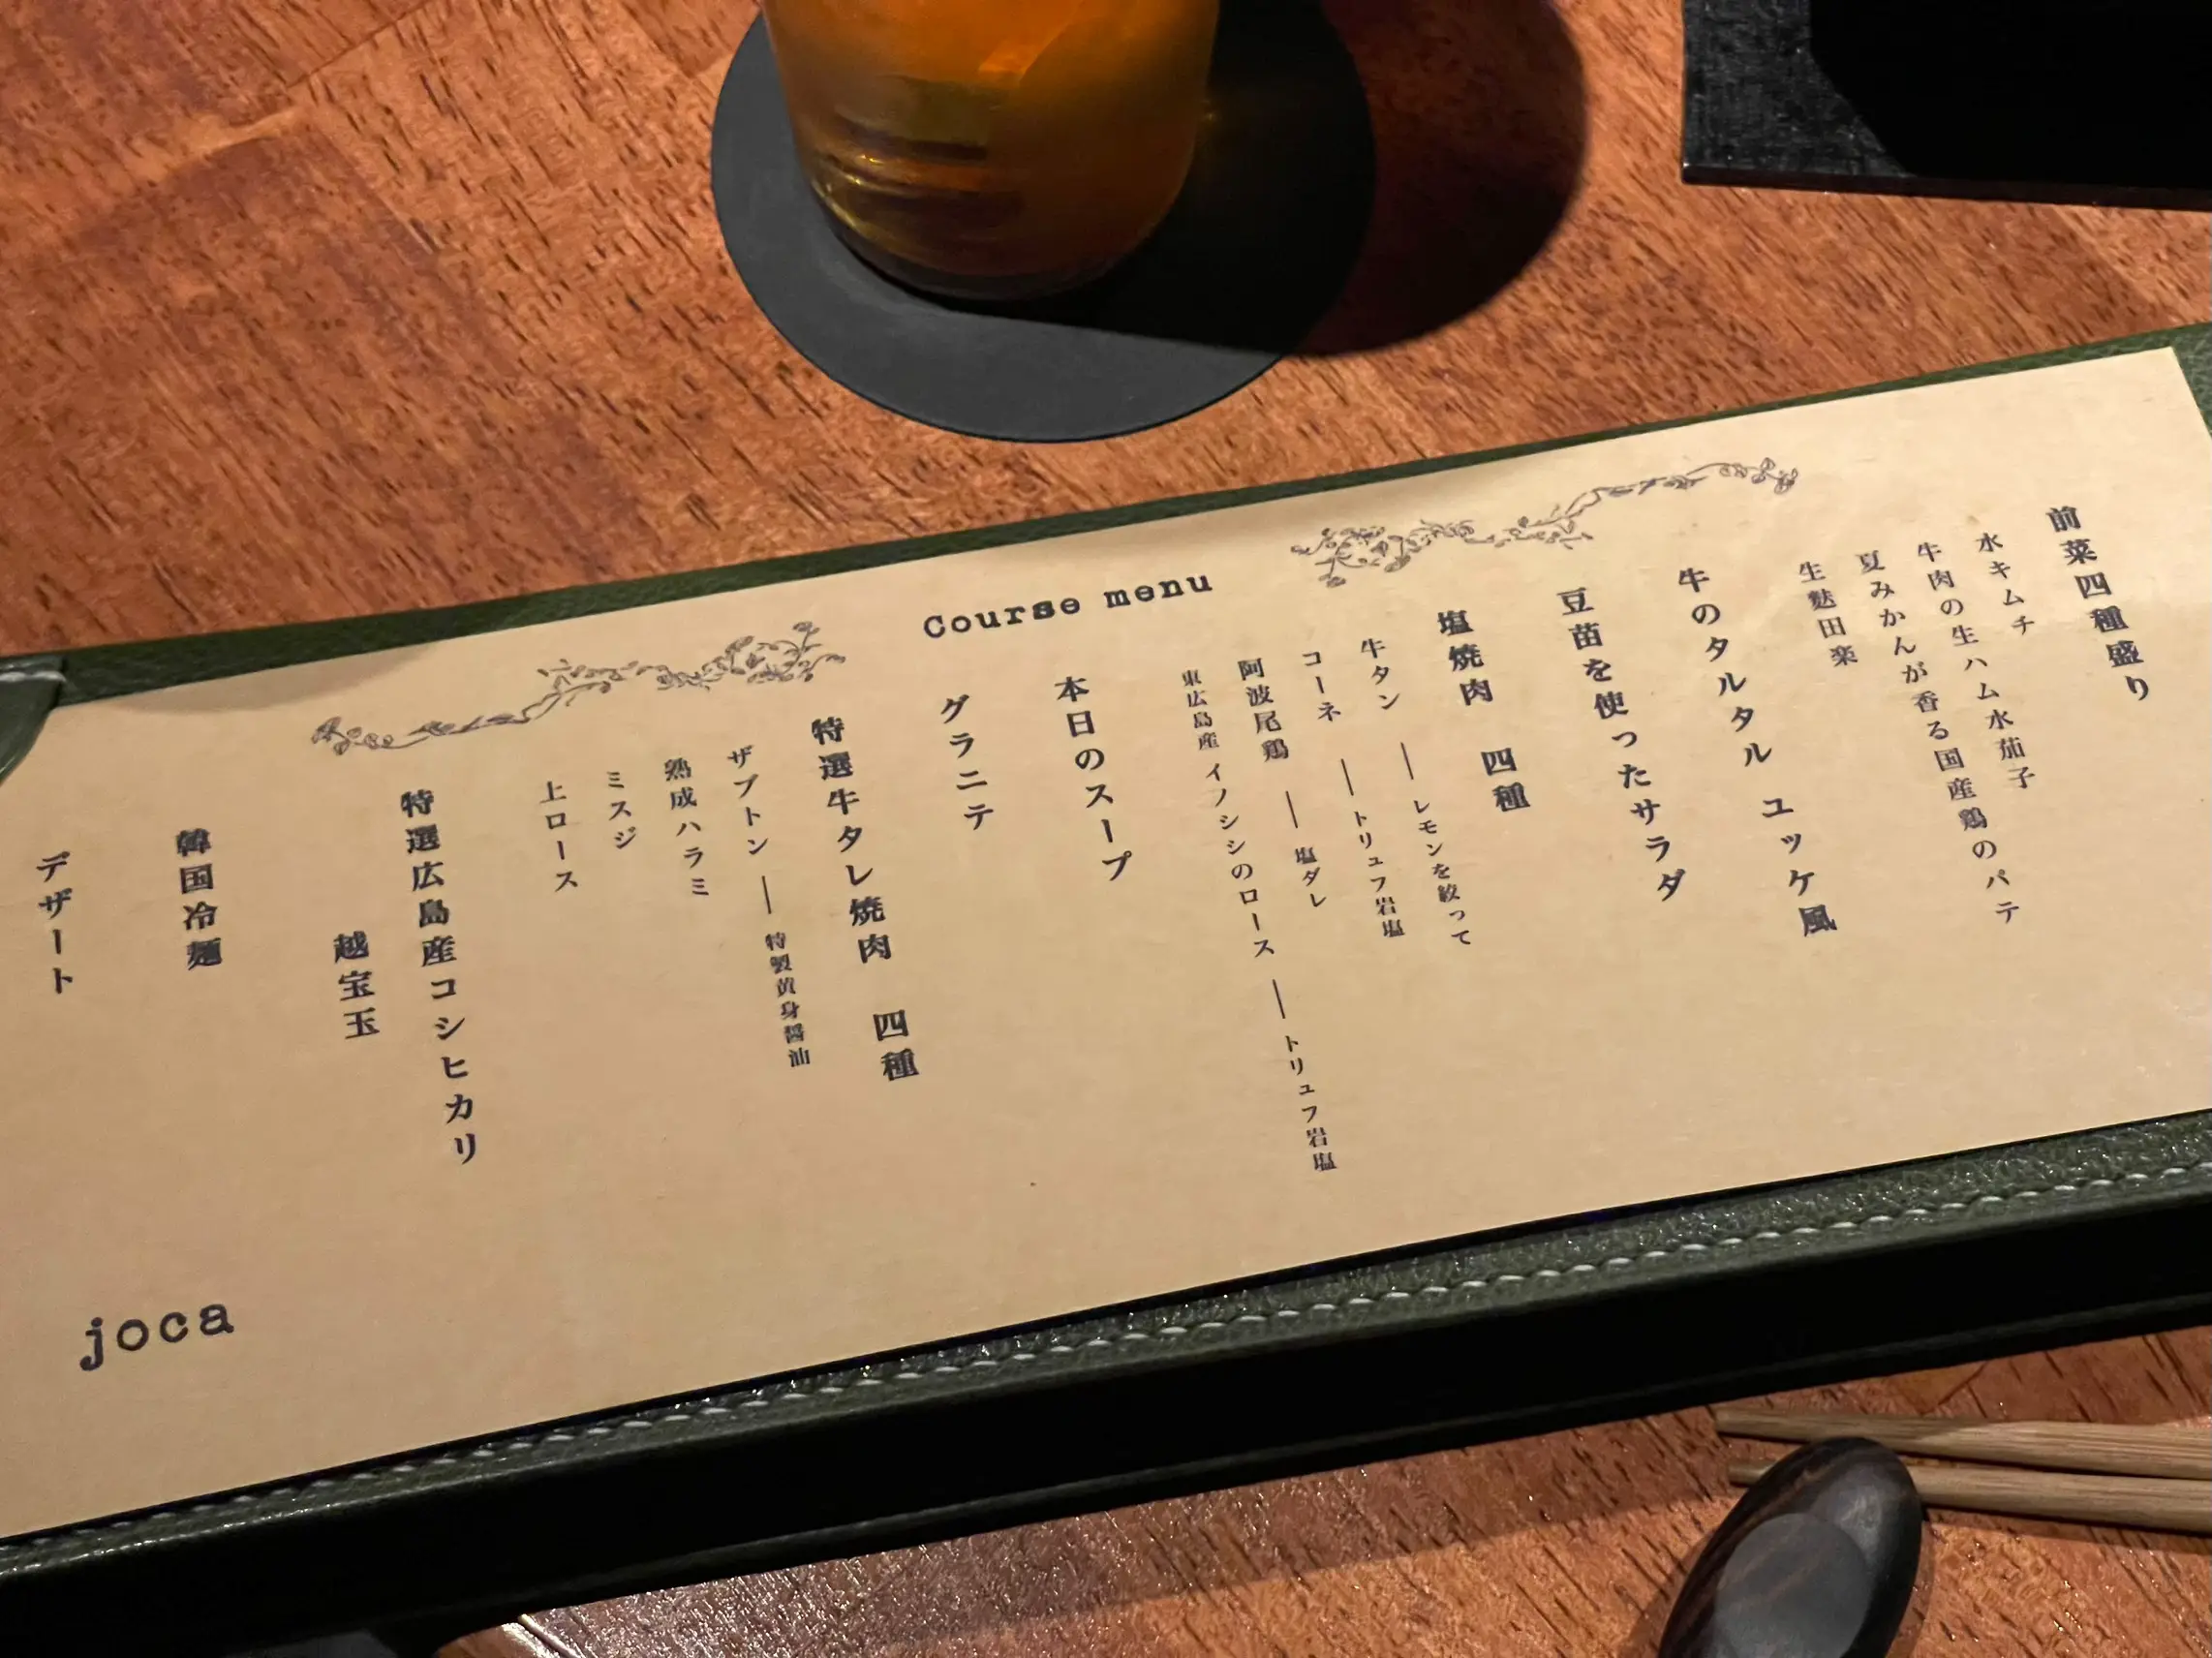 Course menu
前菜四種盛り
水キムチ
牛肉の生ハム水茄子
夏みかんが香る国産鶏のパテ
生麩田楽
牛のタルタル ユッケ風
豆苗を使ったサラダ
塩焼肉 四種
牛タン ― レモンを絞って
コーネ ― トリュフ岩塩
阿波尾鶏 ― 塩ダレ
東広島産 イノシシのロース ― トリュフ岩塩
本日のスープ
グラニテ
特選牛タレ焼肉 四種
ザブトン ― 特製黄身醤油
熟成ハラミ
ミスジ
上ロース
特選広島産コシヒカリ
越宝玉
韓国冷麺
デザート
joca